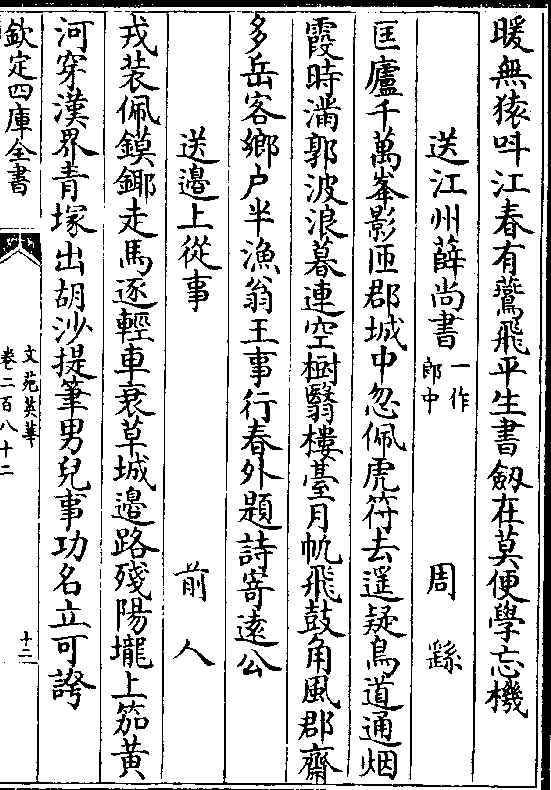 暖無猿呌江春有鴈飛平生書劔在莫便學忘機
送江州薛尚書一作郎中　周繇
匡廬千萬峯影匝郡城中忽佩虎符去遥疑鳥道通烟
霞時滿郭波浪暮連空樹翳樓臺月帆飛鼓角風郡齋
多岳客鄉户半漁翁王事行春外題詩寄逺公
送邉上從事　前人
戎装佩鏌鋣走馬逐輕車衰草城邉路殘陽壠上笳黄
河穿漢界青塚出胡沙提筆男兒事功名立可誇
欽定四庫全書
文苑英華
卷二百八十二
十二